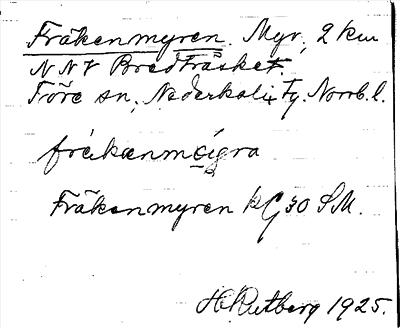 Fräkenmyren. Myr, 2 km
NNV Bredträsket.
Töre sn, Nederkalix tg. Norrb. l.
Fräkenmyren kG 30 SM.
H. Rutberg 1925.